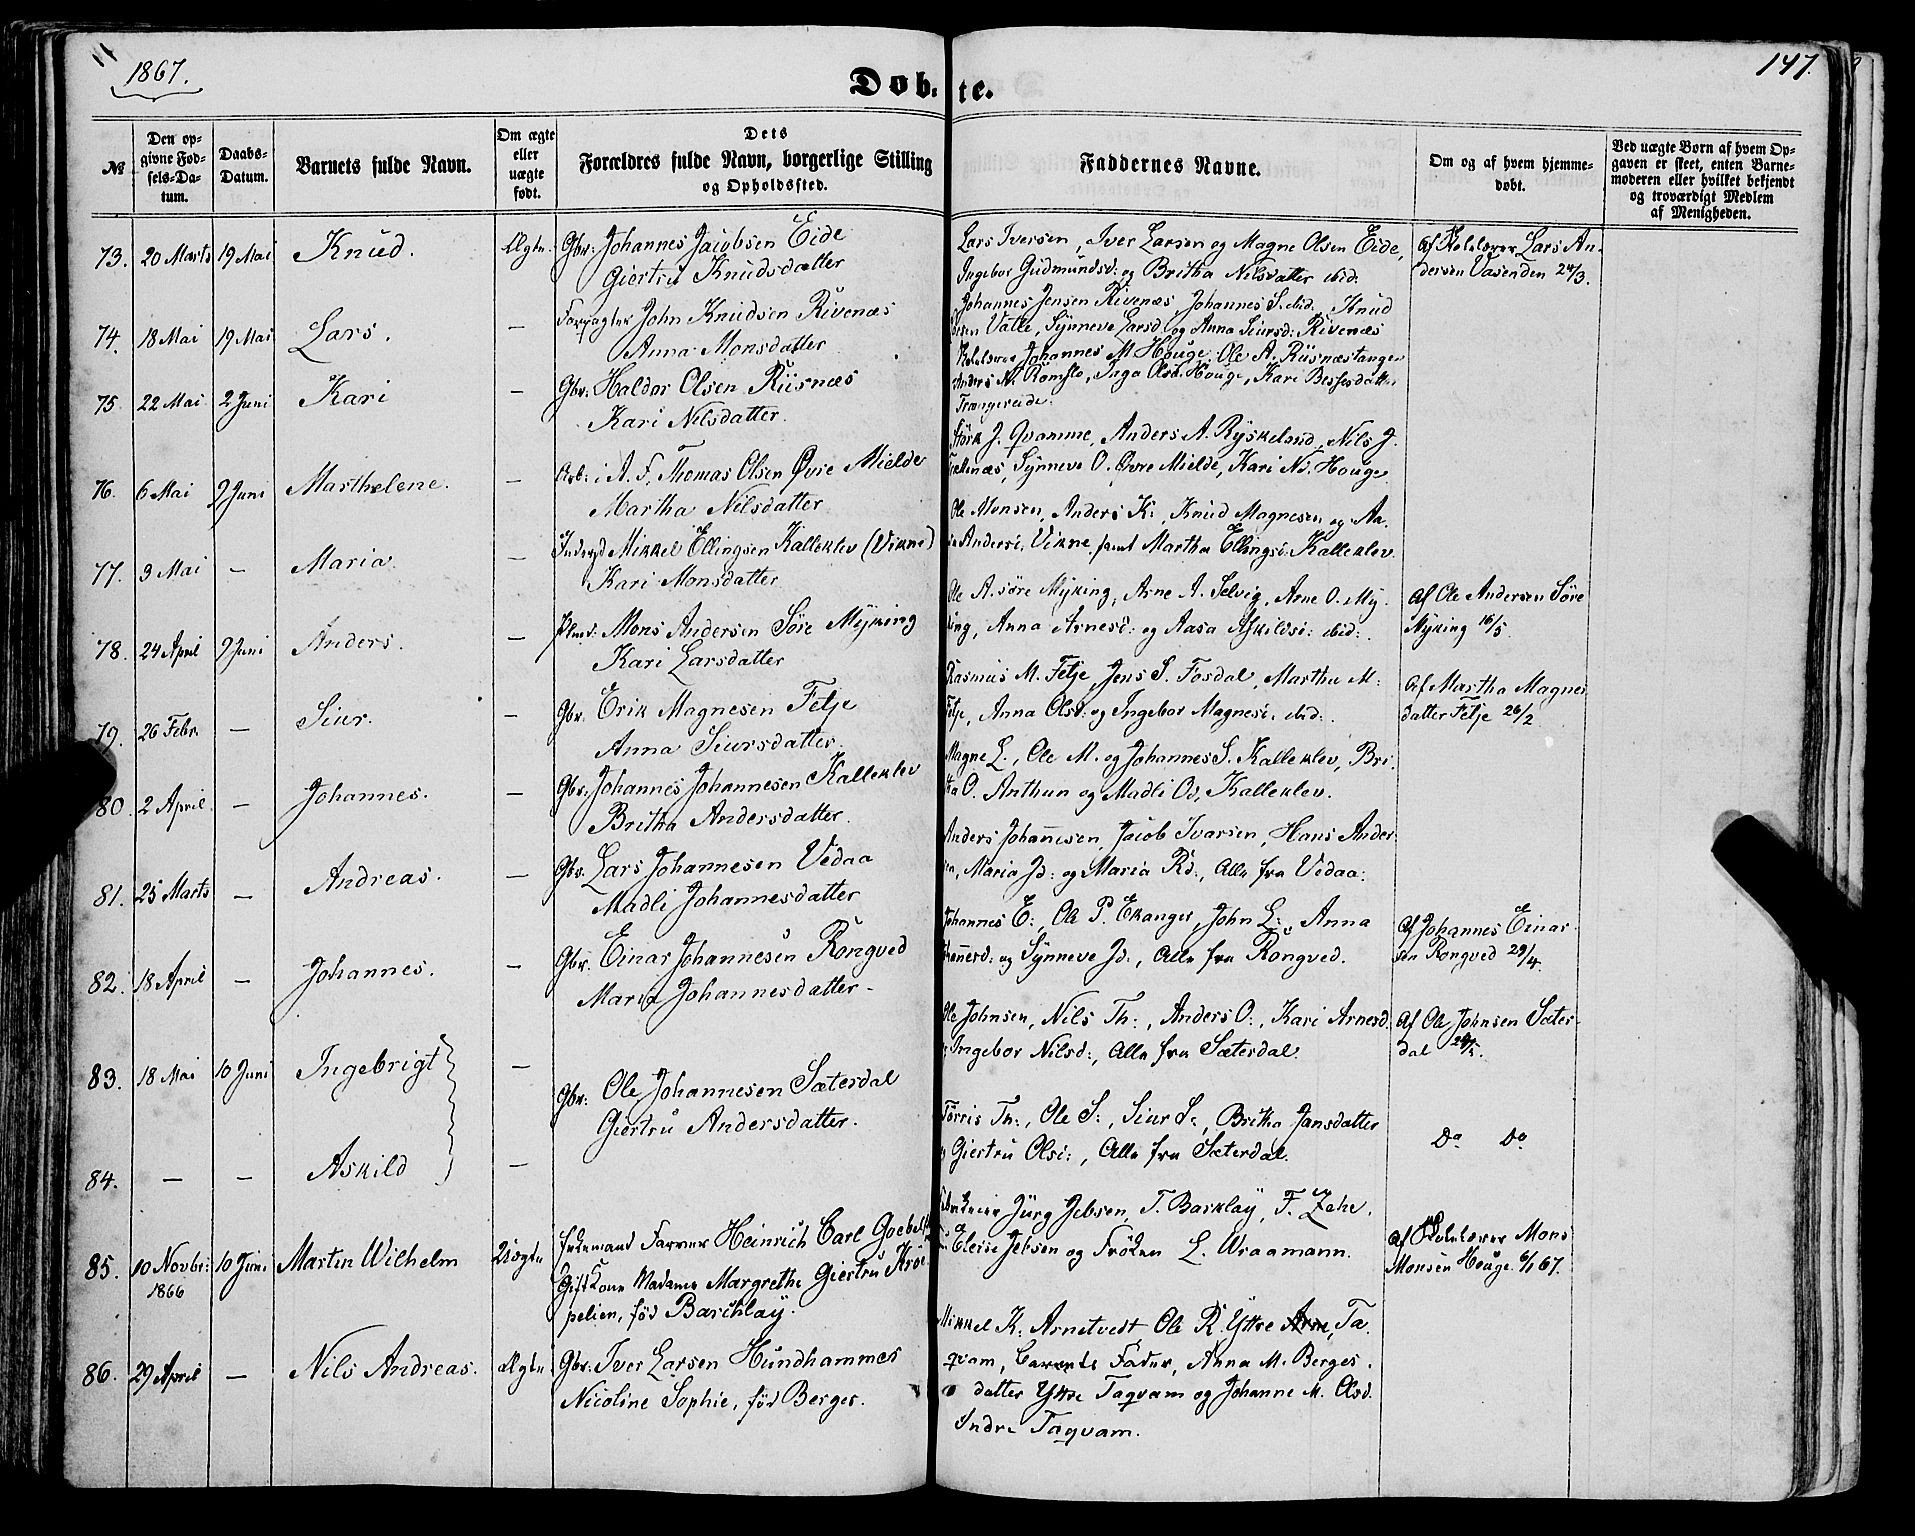 1867.
147.
Døb- te.
№
Den op-
givne Fød-
sels-Da-
tum.
Daabs-
Datum.
Barnets fulde Navn.
Om ægte
eller
uægte
født.
Dets
Forældres fulde Navn, borgerlige Stilling
og Opholdssted.
Faddernes Navne.
Om og af hvem hjemme-
døbt.
Ved uægte Børn af hvem Op-
gaven er skeet, enten Barne-
moderen eller hvilket bekjendt
og troværdigt Medlem
af Menigheden.
73. 20 Marts 19 Mai Knud. Ægte. Gbr: Johannes Jacobsen Eide
Giertru Knudsdatter
Lars Iversen, Iver Larsen og Magne Olsen Eide,
Ingebor Gudmundsd: og Britha Nilsdatter ibid:
Af Skolelærer Lars An-
dersen Vasenden 24/3.
74. 18 Mai 19 Mai Lars. — Forpagter John Knudsen Rivenæs
Anna Monsdatter
Johannes Jensen Rivenæs, Johannes S. ibid. Knud
Valle, Synneve Larsd. og Anna Siursd: Rivenæs
75 22 Mai 2 Juni Kari — Gbr: Haldor Olsen Riisnæs
Kari Nilsdatter.
Skolelærer Johannes M. Houge, Ole A. Riisnæstangen
Anders N. Romslo, Inga Olsd. Houge, Kari Bessesdatter
Trængereide.
76. 6 Mai 9 Juni Marthelene. — Arb: i A. F. Thomas Olsen Øvre Mielde
Martha Nilsdatter
Størk J. Qvamme, Anders A. Ryskeland, Nils J.
Synneve O. Øvre Mielde, Kari Nd. Houge
77. 3 Mai — Maria. — Inderst Mikkel Ellingsen Kalleklev (Vikne)
Kari Monsdatter
Ole Monsen, Anders K:, Knud Magnesen og An-
Andersd: Vikne, samt Martha Ellingsd: Kalleklev.
78. 24 April 9 Juni Anders. — Plmd: Mons Andersen Søre Myking
Kari Larsdatter
Ole A. søre Myking, Arne A. Selvig, Arne O. My-
king, Anna Arnesd: og Aasa Askildsd: ibid:.
Af Ole Andersen Søre
Myking 16/5.
79. 26 Febr. — Siur. — Gbr. Erik Magnesen Fetje
Anna Siursdatter.
Rasmus M. Fetje, Jens S. Fosdal, Martha M:
Fetje, Anna Olsd: og Ingebor Magnesd: ibid:.
Af Martha Magnes
datter Fetje 26/2
80. 2 April. — Johannes. — Gbr. Johannes Johannesen Kalleklev
Britha Andersdatter.
Magne L., Ole M. og Johannes S. Kalleklev, Bri-
tha O. Anthun og Madli Od, Kalleklev.
81. 25 Marts — Andreas. — Gbr. Lars Johannesen Vedaa
Madli Johannesdatter
Anders Johannesen, Jacob Ivarsen, Hans Ander-
sen, Maria Jd: og Maria Rd:, Alle fra Vedaa:
82. 18 April — Johannes. — Gbr. Einar Johannesen Rongved
Maria Johannesdatter-
Johannes E:, Ole P. Ekanger, John L:, Anna
Johannesd: og Synneve Jd:, Alle fra Rongved.
Af Johannes Einar
sen Rongved 29/4.
83. 18 Mai 10 Juni Ingebrigt — Gbr: Ole Johannesen Sæterdal
Giertru Andersdatter.
Ole Johnsen, Nils Th:, Anders O:, Kari Arnesd.
Ingebor Nilsd:, Alle fra Sæterdal.
Af Ole Johnsen Sæter-
dal
84. — — Askild —
Tørris Th:, Ole S:, Siur S:, Britha Jansdatter
Giertru Olsd:, Alle fra Sæterdal.
Do Do
85. 10 Novbr: 10 Juni Martin Wilhelm Uægte
1866
Farver Heinrich Carl Goebel
Gift Kone Madame Margrethe Giertru Krø-
pelien, fød Barchlay.
Jürg Jebsen, T. Barklay, F. Zehe,
Elerse Jebsen og Frøken L. Wraamann.
Af Skolelærer Mons
Monsen Houge 6/1 67.
86. 29 April — Nils Andreas. Ægte Gbr: Iver Larsen Hundhammer
Nicoline Sophie, fød Berger.
Mikkel K. Arnetvedt Ole R. Ytre Ta-
qvam, Barnets Fader, Anna M. Berges-
datter Ytre Taqvam og Johanne M. Olsd.
Indre Taqvam.